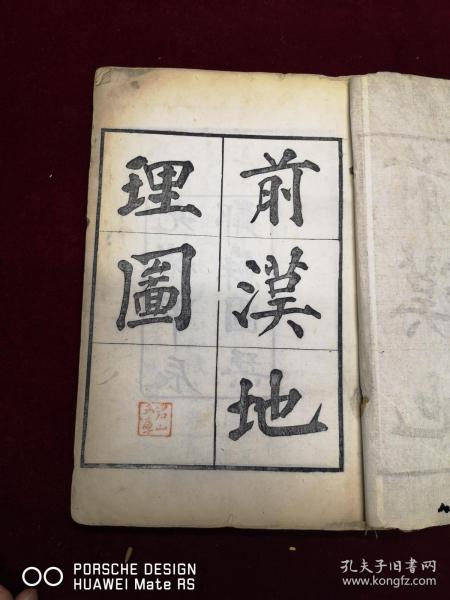 前漢地
理圖
PORSCHE DESIGN
HUAWEI Mate RS
孔夫子旧书网
www.kongfz.com